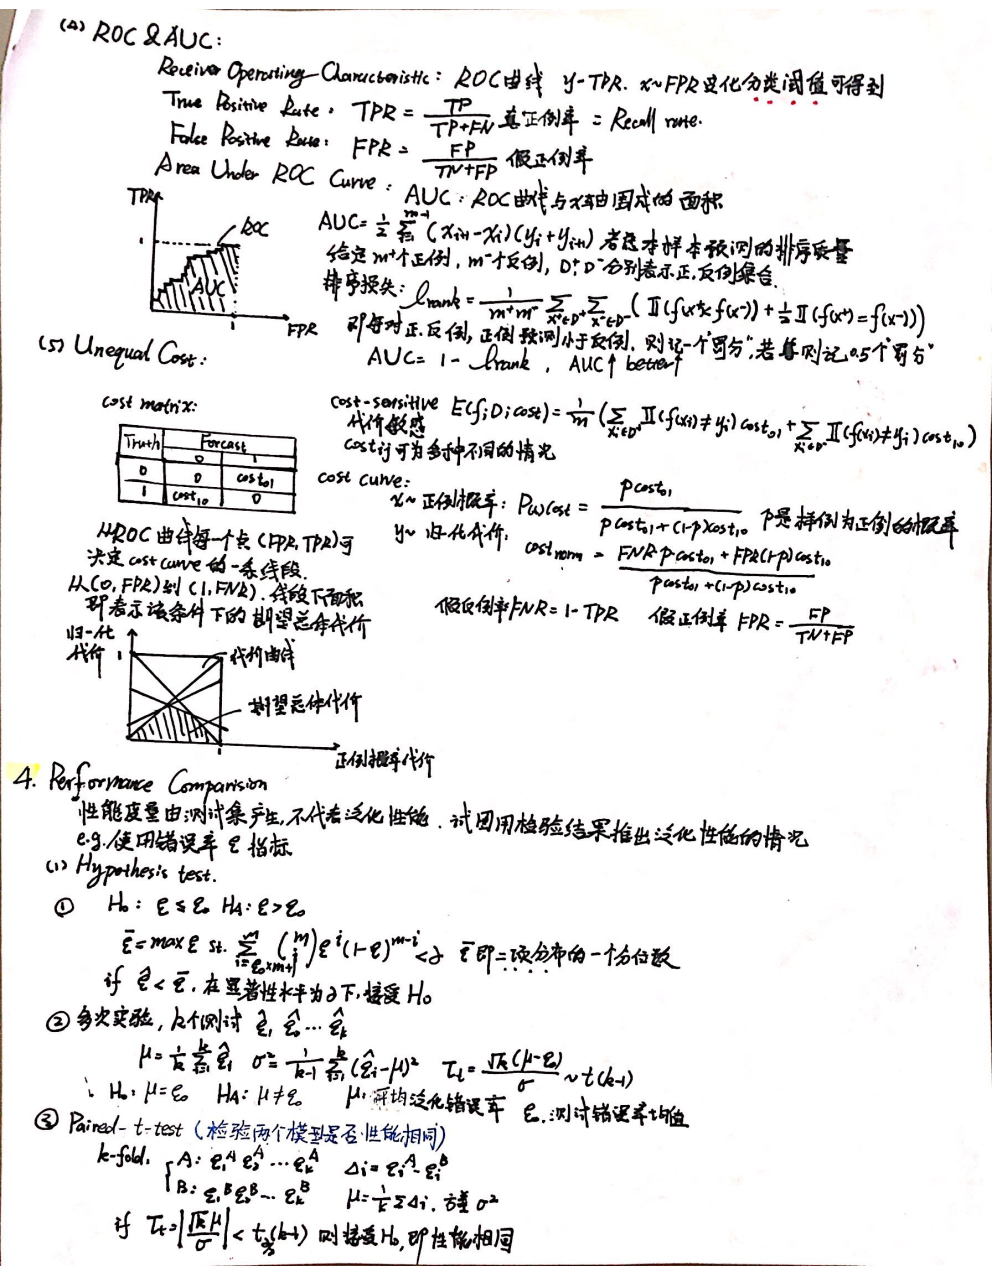 (4) ROC & AUC:
Receiver Operating Characteristic: ROC曲线 y~TPR. x~FPR 变化分类阈值可得到
True Positive Rate: TPR = TP/(TP+FN) 真正例率 = Recall rate.
False Positive Rate: FPR = FP/(TN+FP) 假正例率
Area Under ROC Curve: AUC: ROC曲线与x轴围成的面积
TPR
1
ROC
AUC
1
FPR
AUC = 1/2 Σ_{i=1}^{m-1} (x_{i+1} - x_i)(y_i + y_{i+1}) 考虑本样本预测的排序质量
给定 m⁺个正例, m⁻个反例, D⁺ D⁻分别表示正.反例集合.
排序损失: ℓrank = 1/(m⁺m⁻) Σ_{x⁺∈D⁺} Σ_{x⁻∈D⁻} (𝕀(f(x⁺)<f(x⁻)) + 1/2 𝕀(f(x⁺)=f(x⁻)))
即每对正.反例, 正例预测小于反例, 则记一个"罚分", 若等则记0.5个"罚分"
AUC = 1 - ℓrank, AUC↑ better↑
(5) Unequal Cost:
cost matrix:
Truth Forcast
0 1
0 0 cost₀₁
1 cost₁₀ 0
cost-sensitive E(f;D;cost) = 1/m (Σ_{xi∈D⁺} 𝕀(f(xi)≠yi) cost₀₁ + Σ_{xi∈D⁻} 𝕀(f(xi)≠yi) cost₁₀)
代价敏感
cost ij 可为多种不同的情况
cost curve:
x~ 正例概率: P(+)cost = pcost₀₁/(pcost₀₁+(1-p)cost₁₀) p是样例为正例的概率
y~ 归一化代价: cost norm = (FNR·p·cost₀₁ + FPR(1-p)cost₁₀)/(pcost₀₁+(1-p)cost₁₀)
假反例率 FNR = 1 - TPR 假正例率 FPR = FP/(TN+FP)
从ROC曲线每一个点 (FPR, TPR) 可
决定 cost curve 的一条线段.
从(0, FPR)到 (1, FNR). 线段下面积
即表示该条件下的期望总体代价
归一化
代价
1
代价曲线
期望总体代价
1
正例概率代价
4. Performance Comparision
性能度量由测试集产生, 不代表泛化性能. 试图用检验结果推出泛化性能的情况
e.g. 使用错误率 ε 指标
(1) Hypothesis test.
① H₀: ε ≤ ε₀ H_A: ε > ε₀
ε̄ = max ε st. Σ_{i=ε₀×m+1}^{m} (m i) εⁱ(1-ε)^{m-i} < ∂ ε̄ 即二项分布的一个分位数
if ε̂ < ε̄, 在显著性水平为∂下, 接受 H₀
② 多次实验, k个测试 ε̂₁ ε̂₂ … ε̂k
μ = 1/k Σ_{i=1}^{k} ε̂i σ² = 1/(k-1) Σ_{i=1}^{k} (ε̂i-μ)² τt = √k(μ-ε₀)/σ ~ t(k-1)
H₀: μ = ε₀ H_A: μ ≠ ε₀ μ: 平均泛化错误率 ε₀: 测试错误率均值
③ Paired-t-test (检验两个模型是否性能相同)
k-fold. A: ε₁ᴬ ε₂ᴬ … εkᴬ Δi = εiᴬ - εiᴮ
B: ε₁ᴮ ε₂ᴮ … εkᴮ μ = 1/k ΣΔi, 方差 σ²
if τt = |√k μ/σ| < t_{∂/2}(k-1) 则接受H₀, 即性能相同